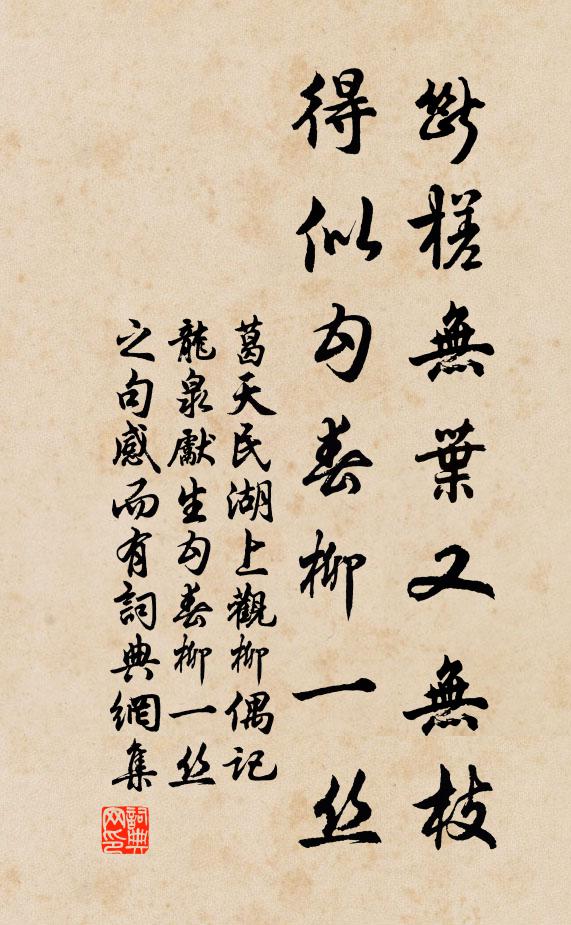 斷槎無葉又無枝
得似勾春柳一丝
葛天民湖上觀柳偶記
龍泉獻生勾春柳一丝
之句感而有詞典網集
詞典
网印